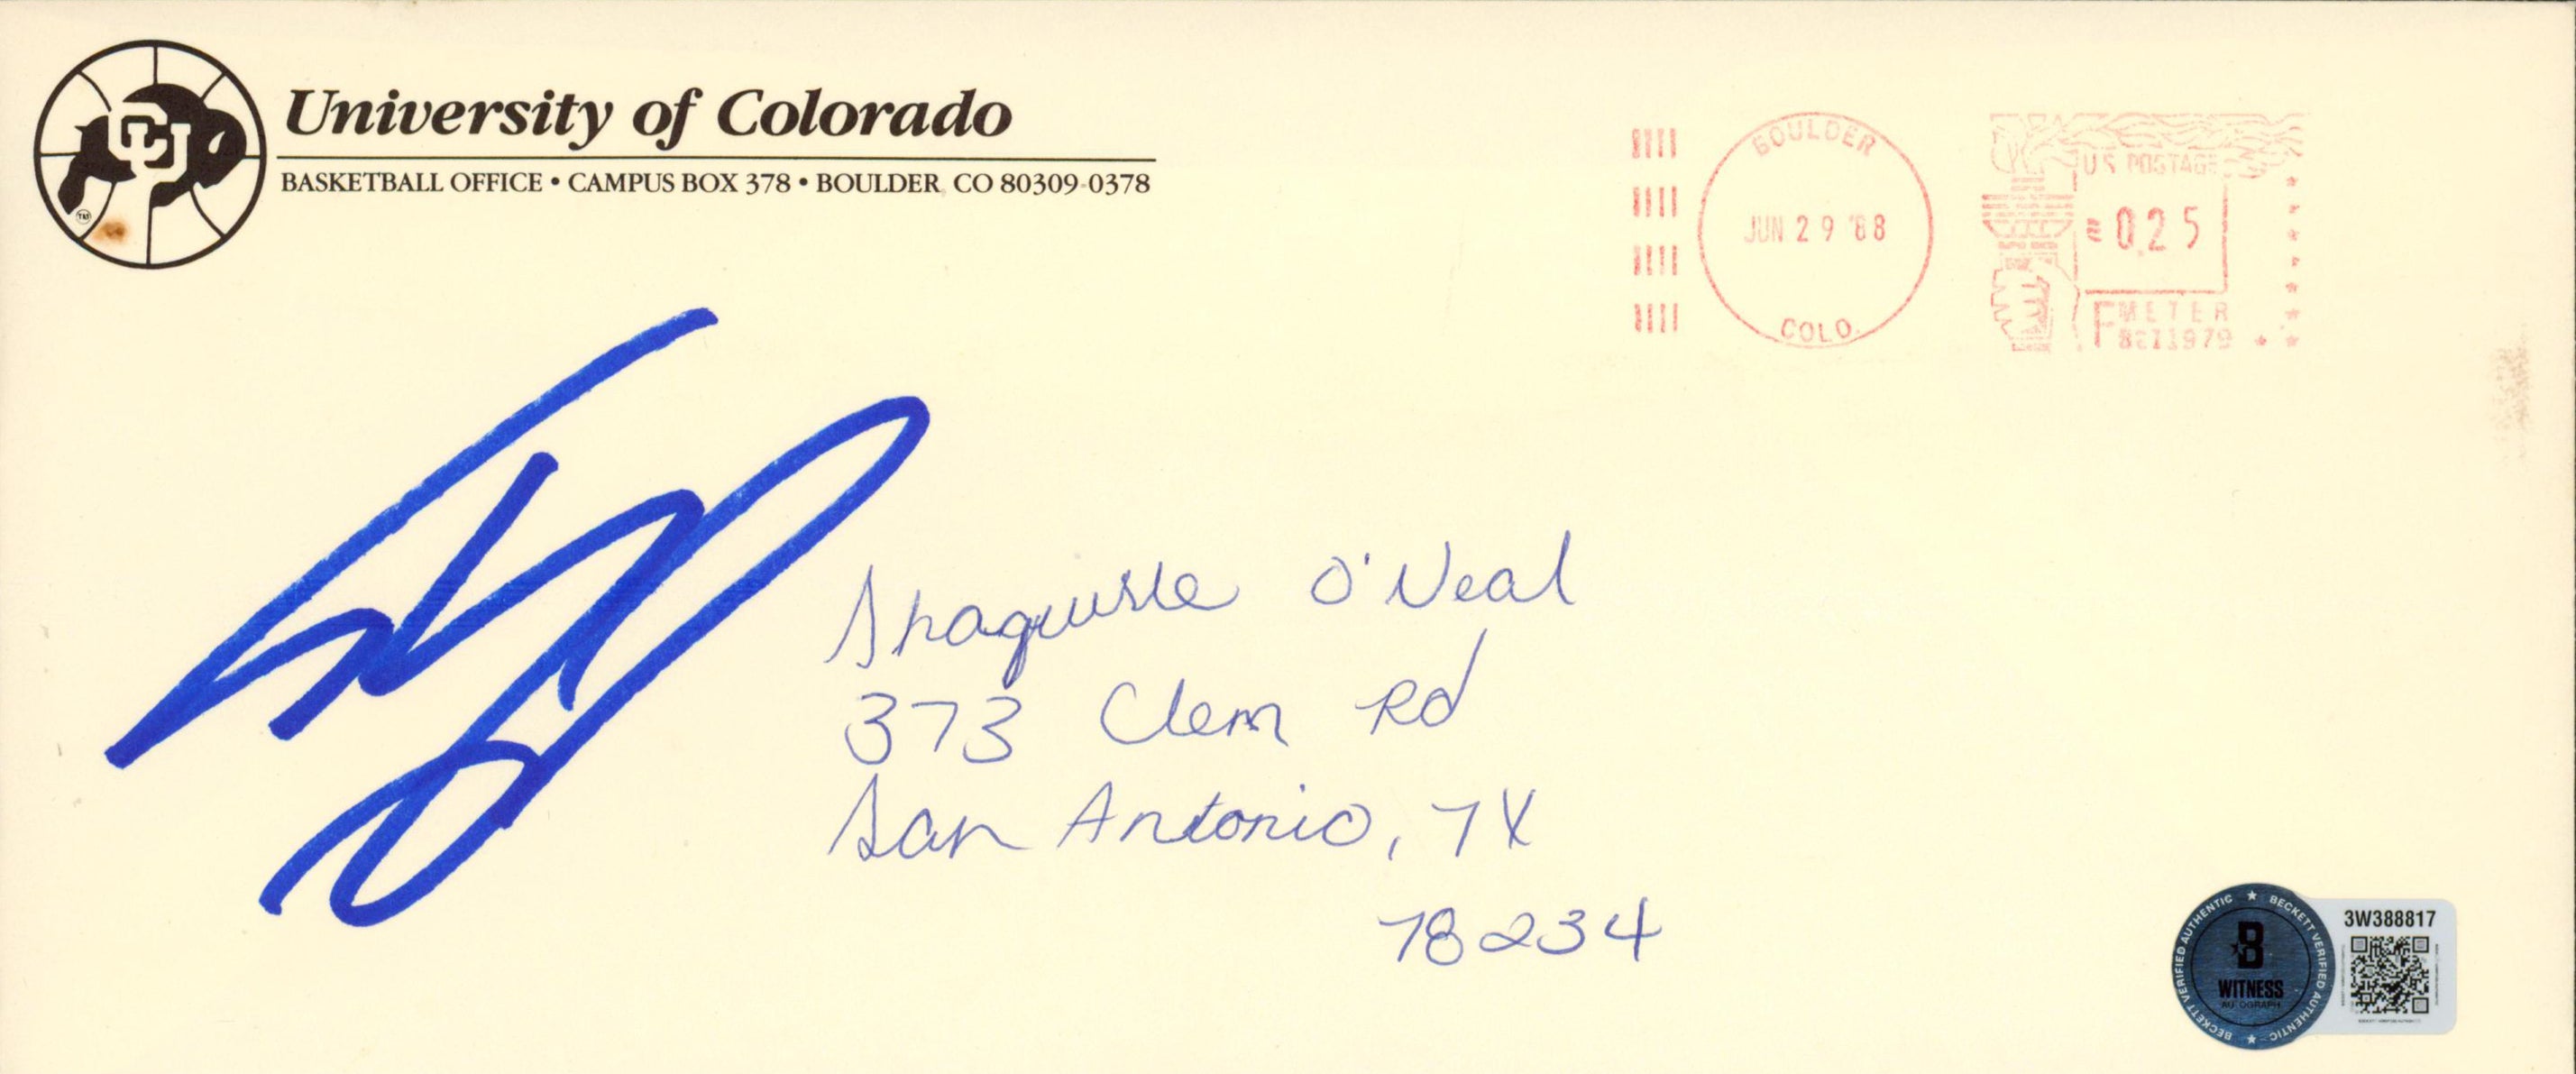 CU
University of Colorado
BASKETBALL OFFICE • CAMPUS BOX 378 • BOULDER, CO 80309-0378
BOULDER
JUN 29 '88
COLO.
U.S. POSTAGE
025
METER
Shaquille O'Neal
373 Clem Rd
San Antonio, TX
78234
3W388817
BECKETT VERIFIED AUTHENTIC ★ BECKETT VERIFIED AUTHENTIC ★
B
WITNESS
AUTOGRAPH